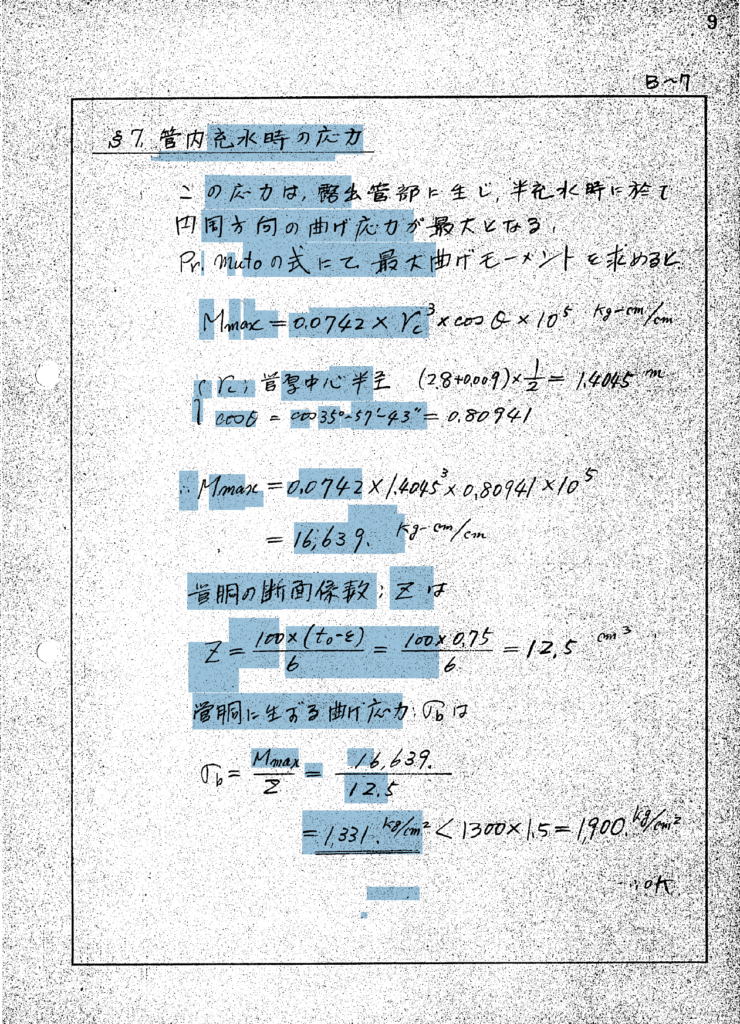 9
B〜7
§7. 管内充水時の応力
この応力は, 露出管部に生じ, 半充水時に於て
円周方向の曲げ応力が最大となる.
Pr. Mutoの式にて最大曲げモーメントを求めると
Mmax = 0.0742 × rc³ × cosθ × 10⁵ kg-cm/cm
rc ; 管厚中心半径 (2.8+0.009)×1/2 = 1.4045 m
cosθ = cos35°-57'-43" = 0.80941
∴ Mmax = 0.0742 × 1.4045³ × 0.80941 × 10⁵
= 16,639. kg-cm/cm
管胴の断面係数 ; Z は
Z = 100×(t₀-ε)/6 = 100×0.75/6 = 12.5 cm³
管胴に生ずる曲げ応力 ; σb は
σb = Mmax/Z = 16,639./12.5
= 1,331. kg/cm² < 1300×1.5 = 1,900. kg/cm²
∴ OK